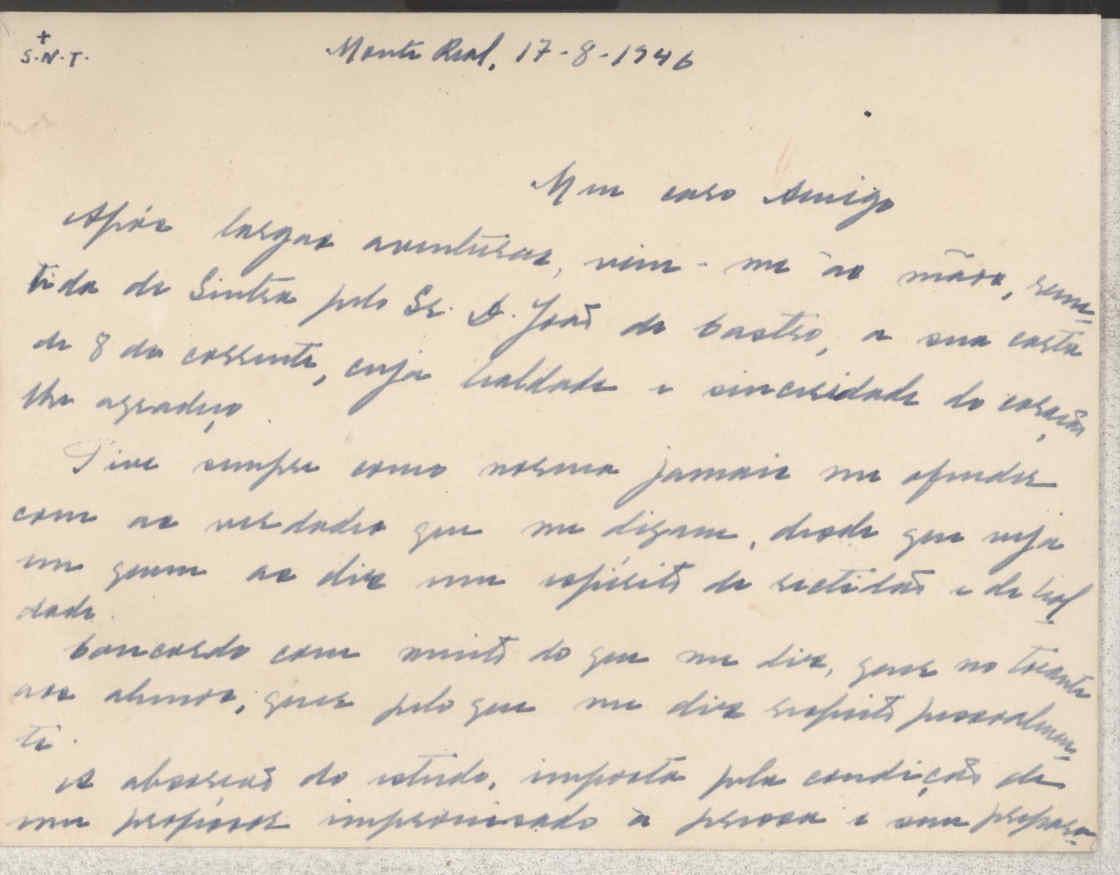 +
S.N.T.
Monte Real, 17-8-1946
Meu caro Amigo
Após largas aventuras, veim-me às mãos, reme-
tida de Sintra pelo Sr. D. João de Castro, a sua carta
de 8 do corrente, cuja lealdade e sinceridade do coração
lhe agradeço.
Tive sempre como norma jamais me ofender
com as verdades que me digam, desde que veja
em quem as diz um espírito de rectidão e de leal
dade.
Concordo com muito do que me diz, quer no tocante
aos alunos, quer pelo que me diz respeito pessoalmen-
te.
A absorção do estudo, imposta pela condição de
um professor improvisado à pressa e sem prepara-